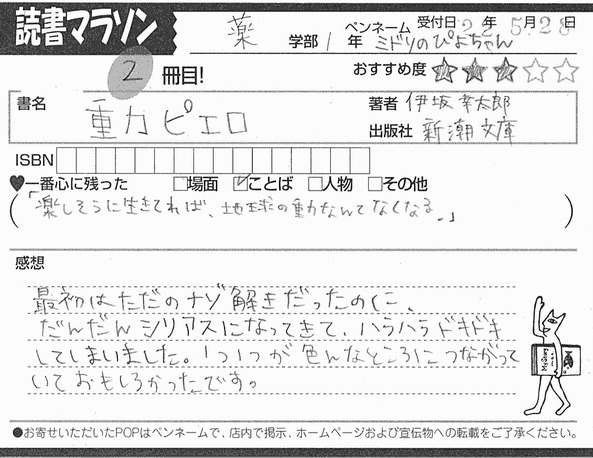 読書マラソン
薬 学部 1 年 ペンネーム ミドリのぴよちゃん 受付日 22年 5月28日
2 冊目! おすすめ度 ★★★☆☆
書名 重力ピエロ
著者 伊坂幸太郎
出版社 新潮文庫
ISBN
♥一番心に残った □場面 ☑ことば □人物 □その他
(「楽しそうに生きてれば、地球の重力なんてなくなる。」)
感想
最初はただのナゾ解きだったのに、
だんだんシリアスになってきて、ハラハラドキドキ
してしまいました。1つ1つが色んなところにつながって
いておもしろかったです。
●お寄せいただいたPOPはペンネームで、店内で掲示、ホームページおよび宣伝物への転載をご了承ください。